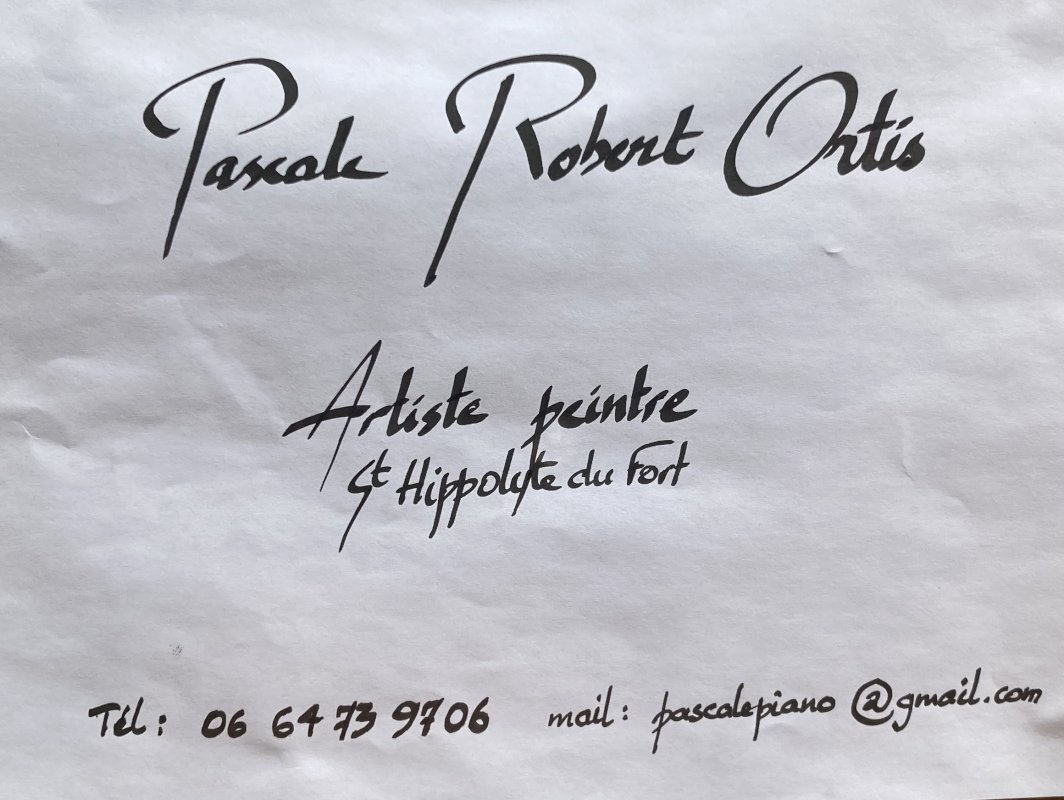 Pascale Robert Ortis
Artiste peintre
St Hippolyte du Fort
Tél : 06 64 73 9706 mail : pascalepiano @gmail.com